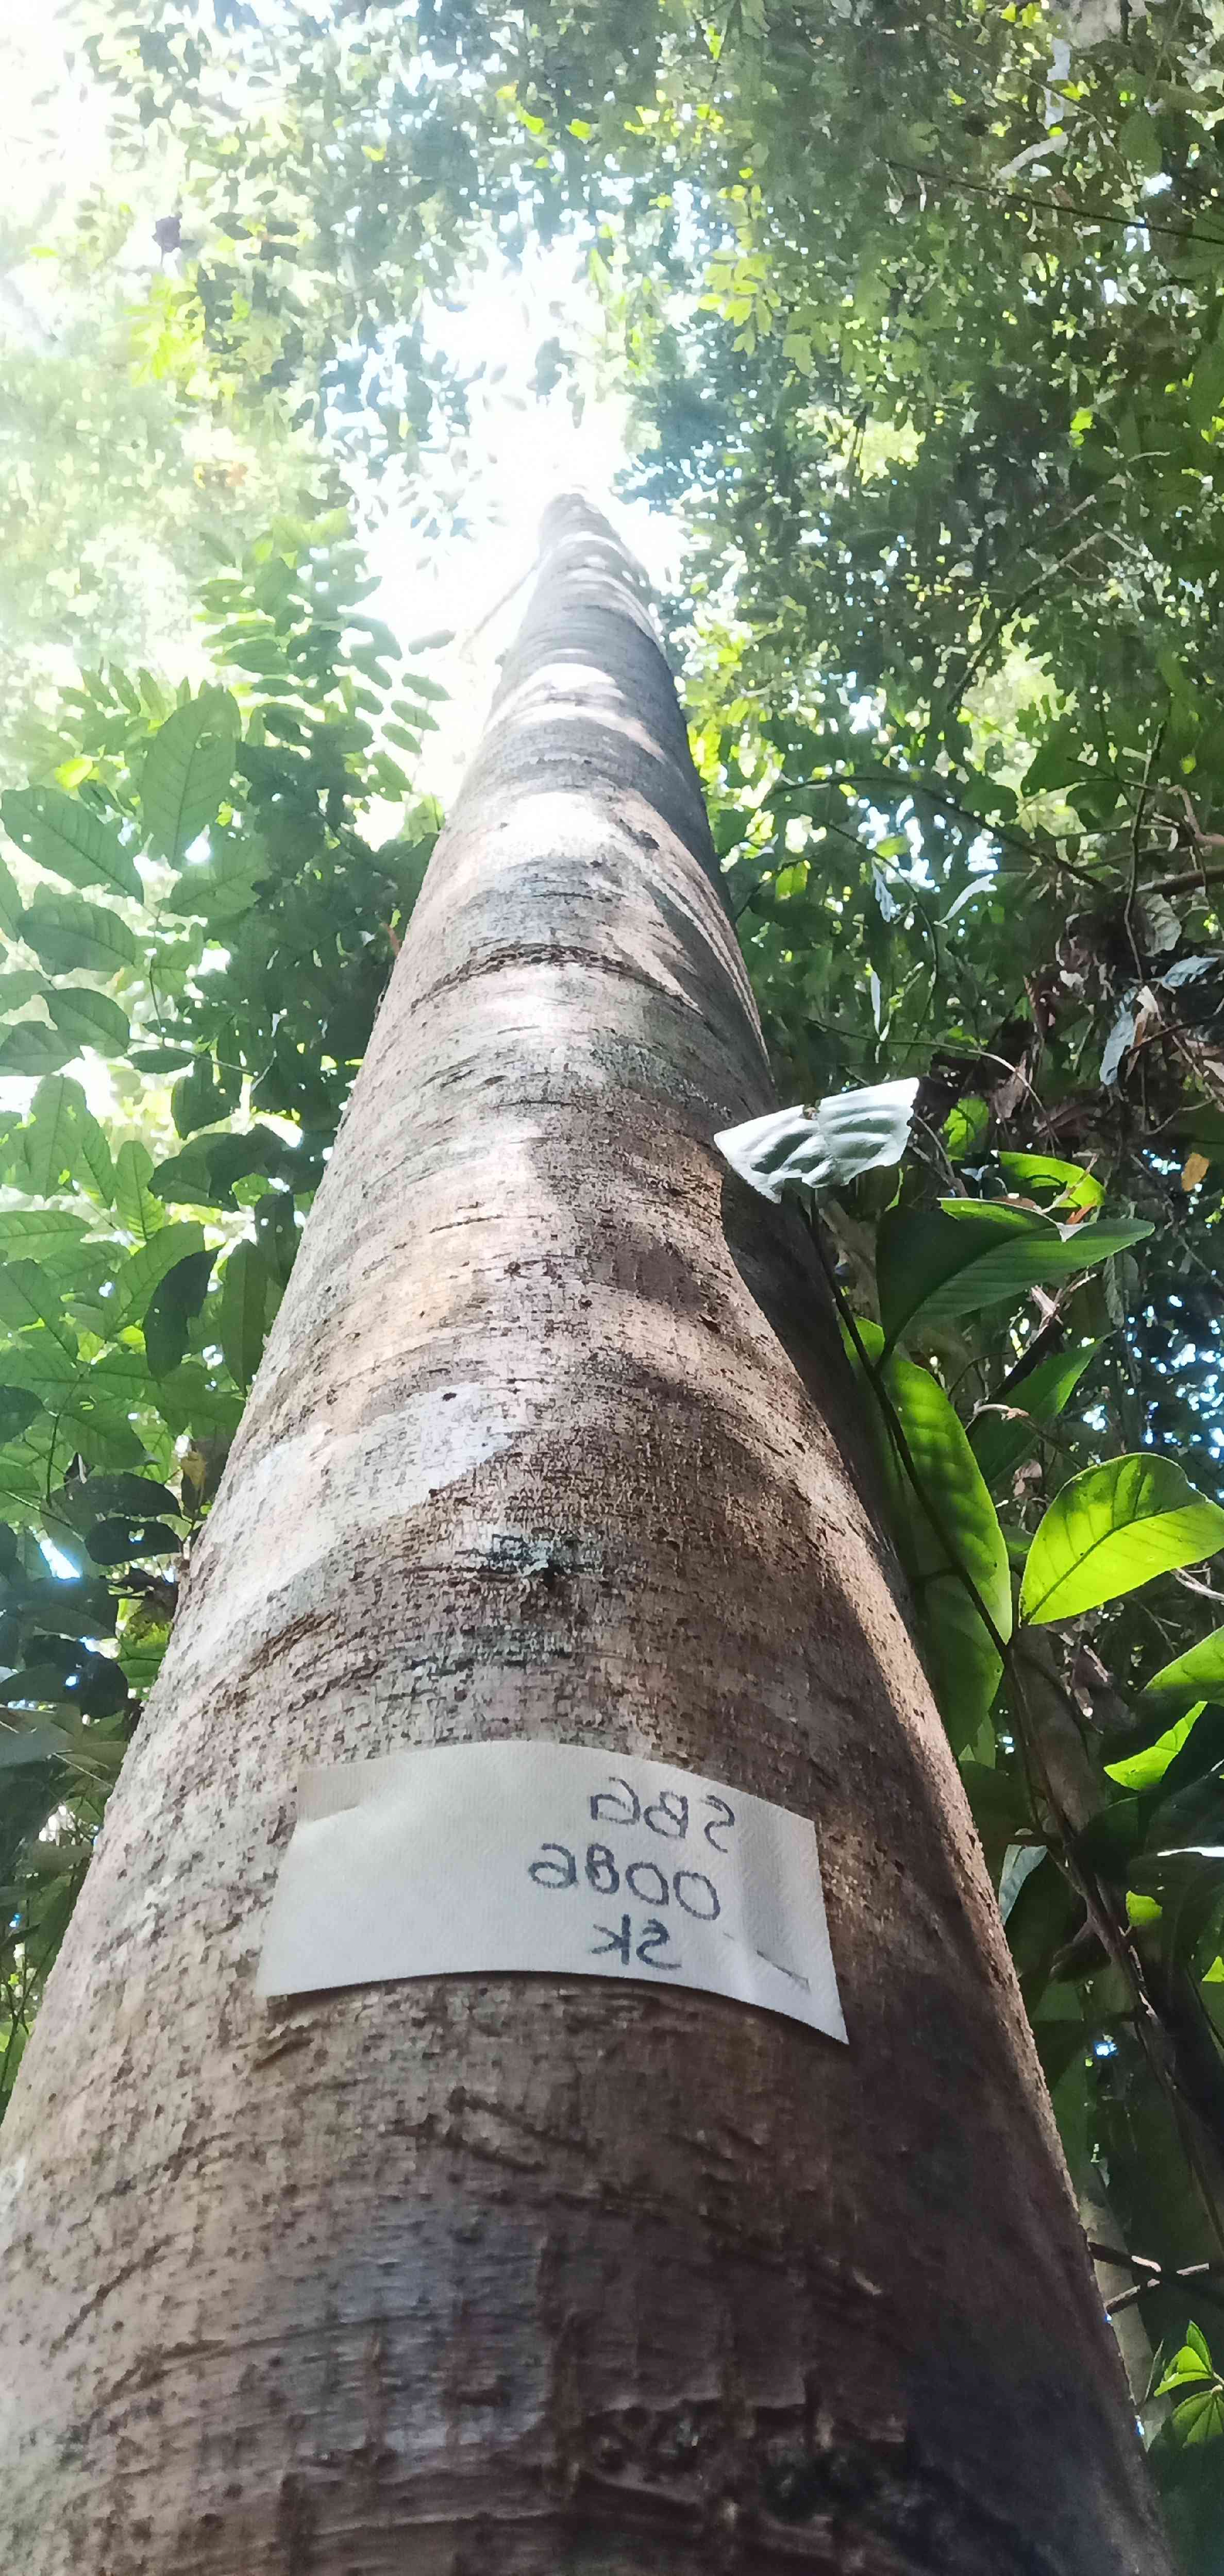 SBG
0086
SK